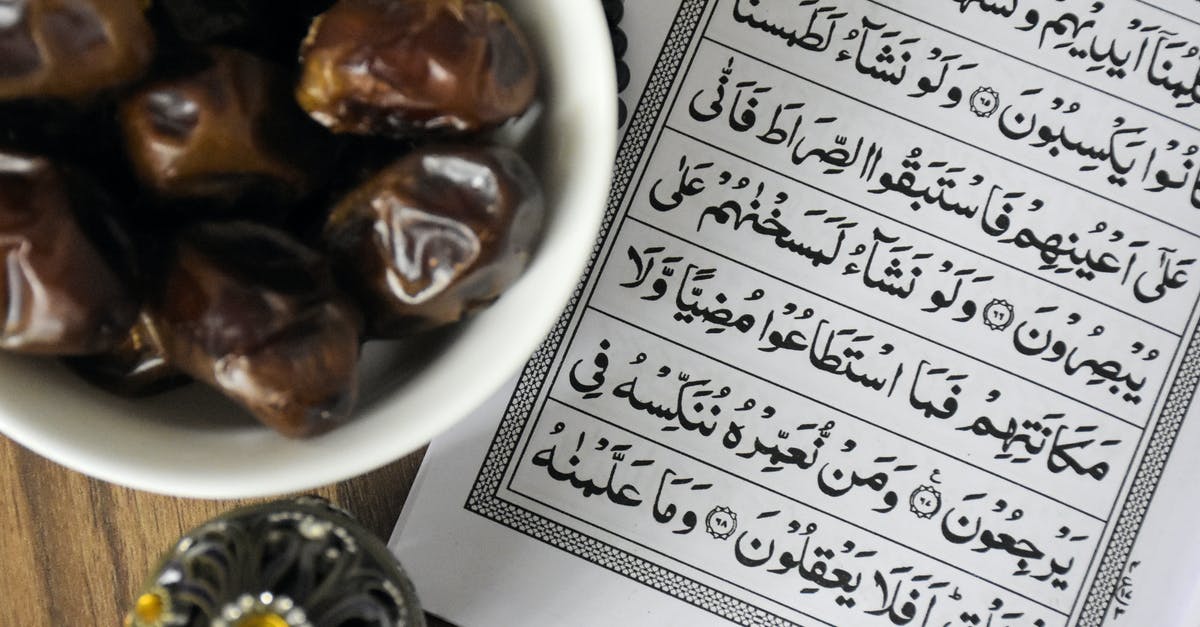 اَيْدِيْهِمْ
انُوْا يَكْسِبُوْنَ ۶۵ وَلَوْ نَشَآءُ لَطَمَسْنَا
عَلٰٓى اَعْيُنِهِمْ فَاسْتَبَقُوا الصِّرَاطَ فَاَنّٰى
يُبْصِرُوْنَ ۶۶ وَلَوْ نَشَآءُ لَمَسَخْنٰهُمْ عَلٰى
مَكَانَتِهِمْ فَمَا اسْتَطَاعُوْا مُضِيًّا وَّلَا
يَرْجِعُوْنَ ۶۷ وَمَنْ نُّعَمِّرْهُ نُنَكِّسْهُ فِى
اَفَلَا يَعْقِلُوْنَ ۶۸ وَمَا عَلَّمْنٰهُ